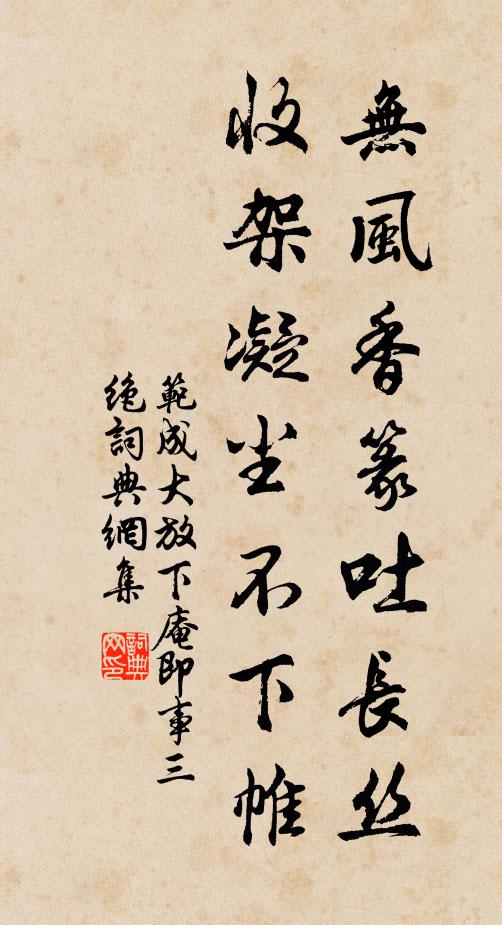 無風香篆吐長丝
收架凝尘不下帷
範成大放下庵即事三
絶詞典網集
詞典网印